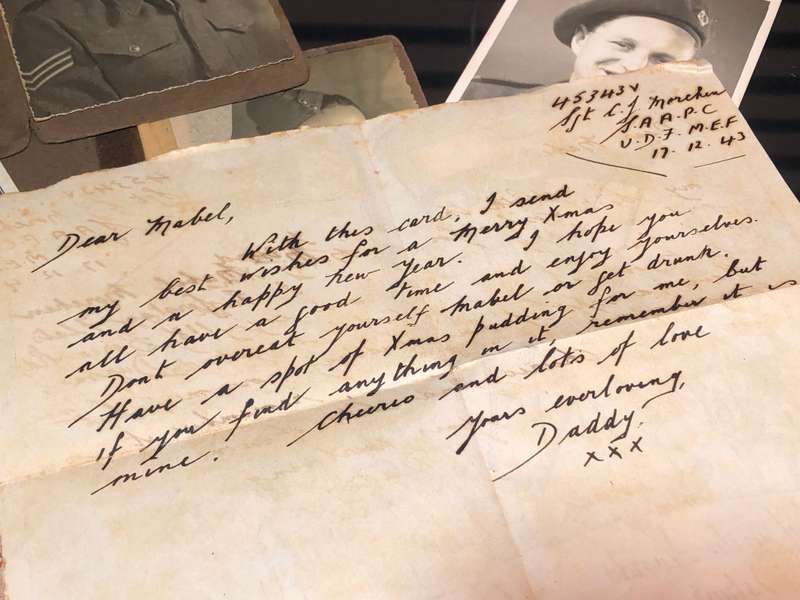 453434V
Sgt C. J Morchen
S.A.A.P.C
U.D.F. M.E.F
17. 12. 43
Dear Mabel,
With this card, I send
my best wishes for a Merry Xmas
and a happy new year. I hope you
all have a good time and enjoy yourselves.
Dont overeat yourself Mabel or get drunk.
Have a spot of Xmas pudding for me, but
if you find anything in it, remember it is
mine. Cheerio and lots of love
yours everloving,
Daddy.
xxx